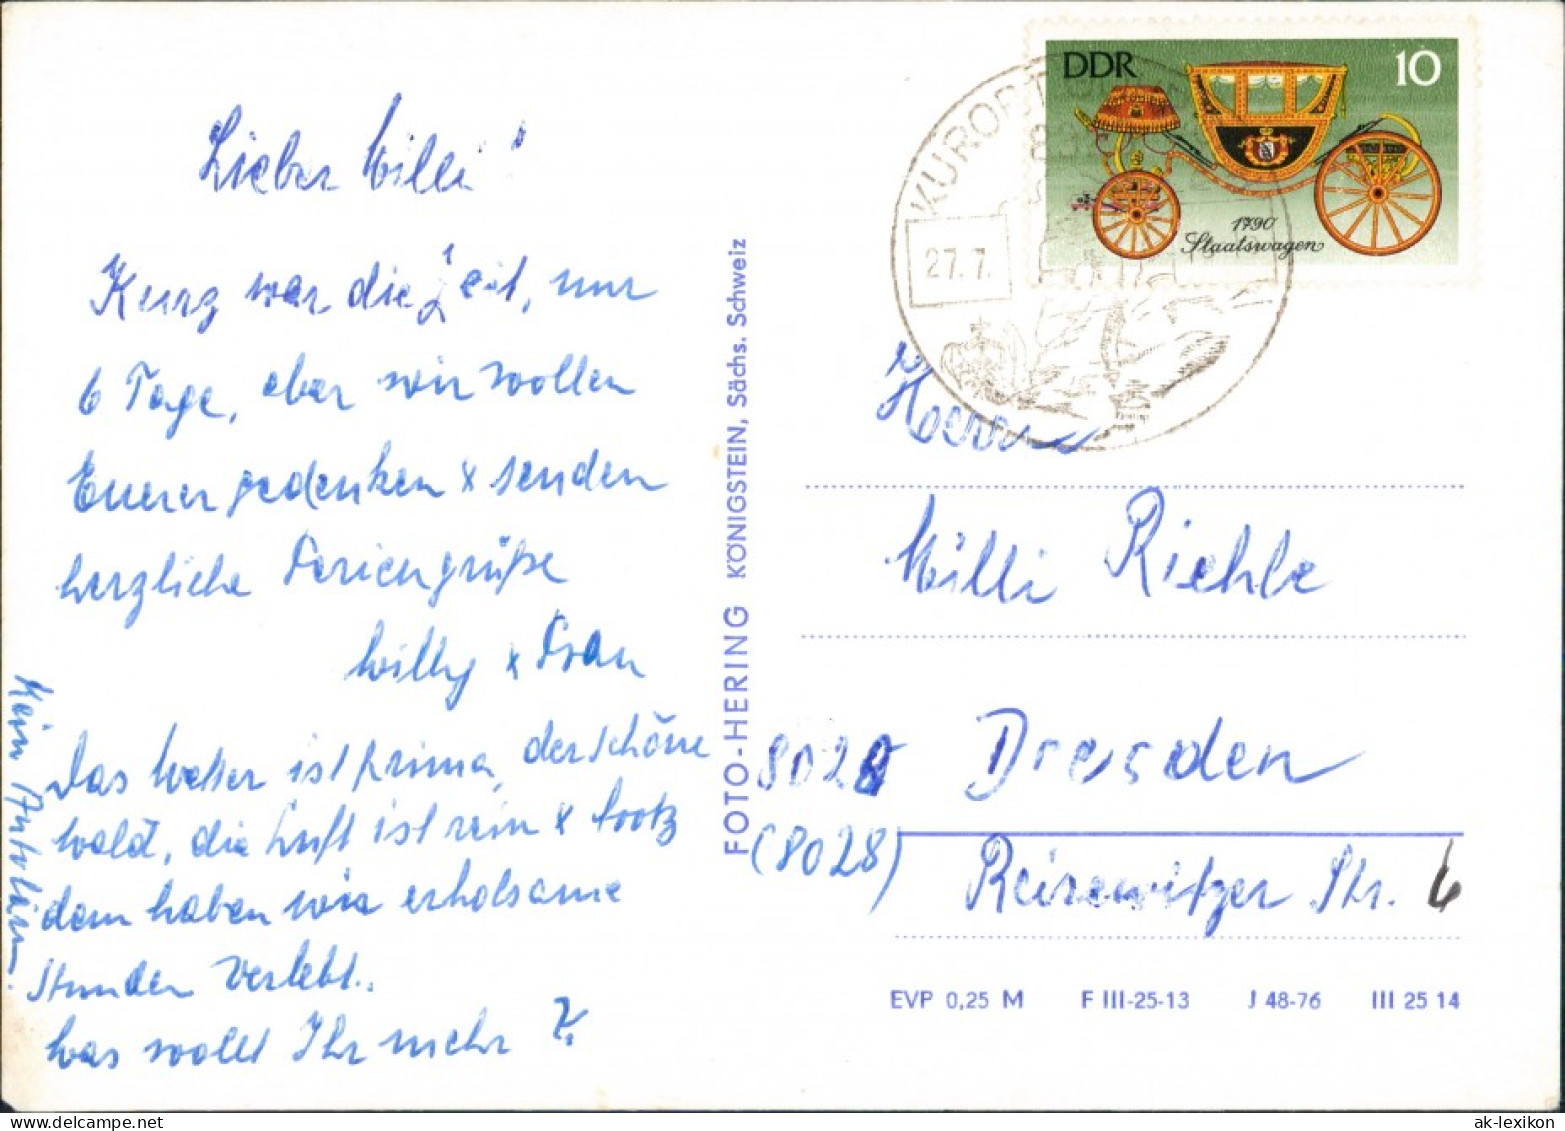 Lieber Willi"
Kurz war die Zeit, nur
6 Tage, aber wir wollen
Eurer gedenken & senden
herzliche Feriengrüße
Willy & Frau
Das Wetter ist prima, der schöne
Wald, die Luft ist rein & trotz
dem haben wir erholsame
Stunden verlebt.
Was wollt Ihr mehr?
Kein
FOTO-HERING KÖNIGSTEIN, Sächs. Schweiz
DDR 10
1790
Staatswagen
KURORT
27.7.
Herrn
Willi Riehle
8020 Dresden
(8028)
Reisewitzer Str. 6
EVP 0,25 M F III-25-13 J 48-76 III 25 14
ak-lexikon